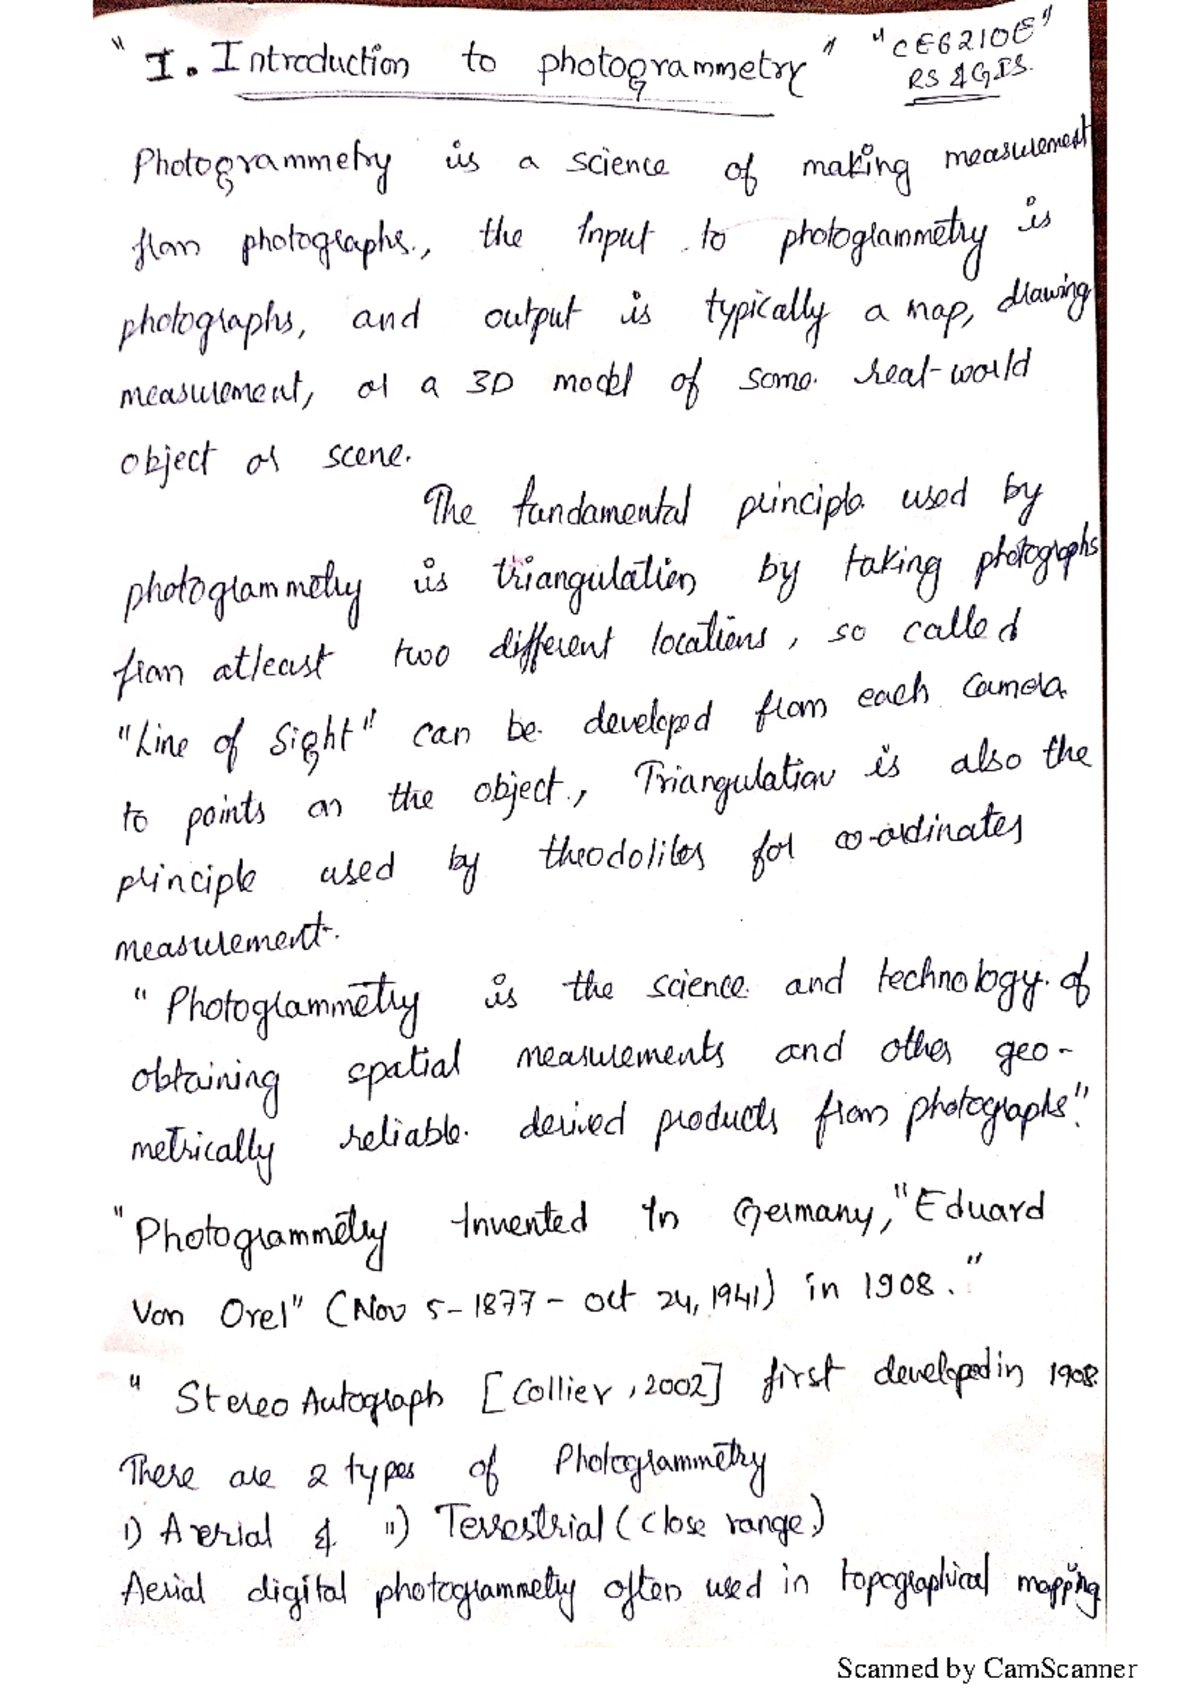 " I. Introduction to photogrammetry " "CE6210E"
RS & GIS.
Photogrammetry is a science of making measurement
from photographs., the Input to photogrammetry is
photographs, and output is typically a map, drawing
measurement, or a 3D model of some real-world
object or scene.
The fundamental principle used by
photogrammetry is triangulation by taking photographs
from atleast two different locations, so called
"Line of Sight" can be developed from each camera
to points on the object., Triangulation is also the
principle used by theodolites for co-ordinates
measurement.
" Photogrammetry is the science and technology of
obtaining spatial measurements and other geo-
metrically reliable derived products from photographs."
"Photogrammetry Invented In Germany, "Eduard
Von Orel" (Nov 5-1877 - oct 24, 1941) in 1908."
" Stereo Autograph [Collier, 2002] first developed in 1908.
There are 2 types of Photogrammetry
i) Aerial & ii) Terrestrial (close range)
Aerial digital photogrammetry often used in topographical mapping
Scanned by CamScanner